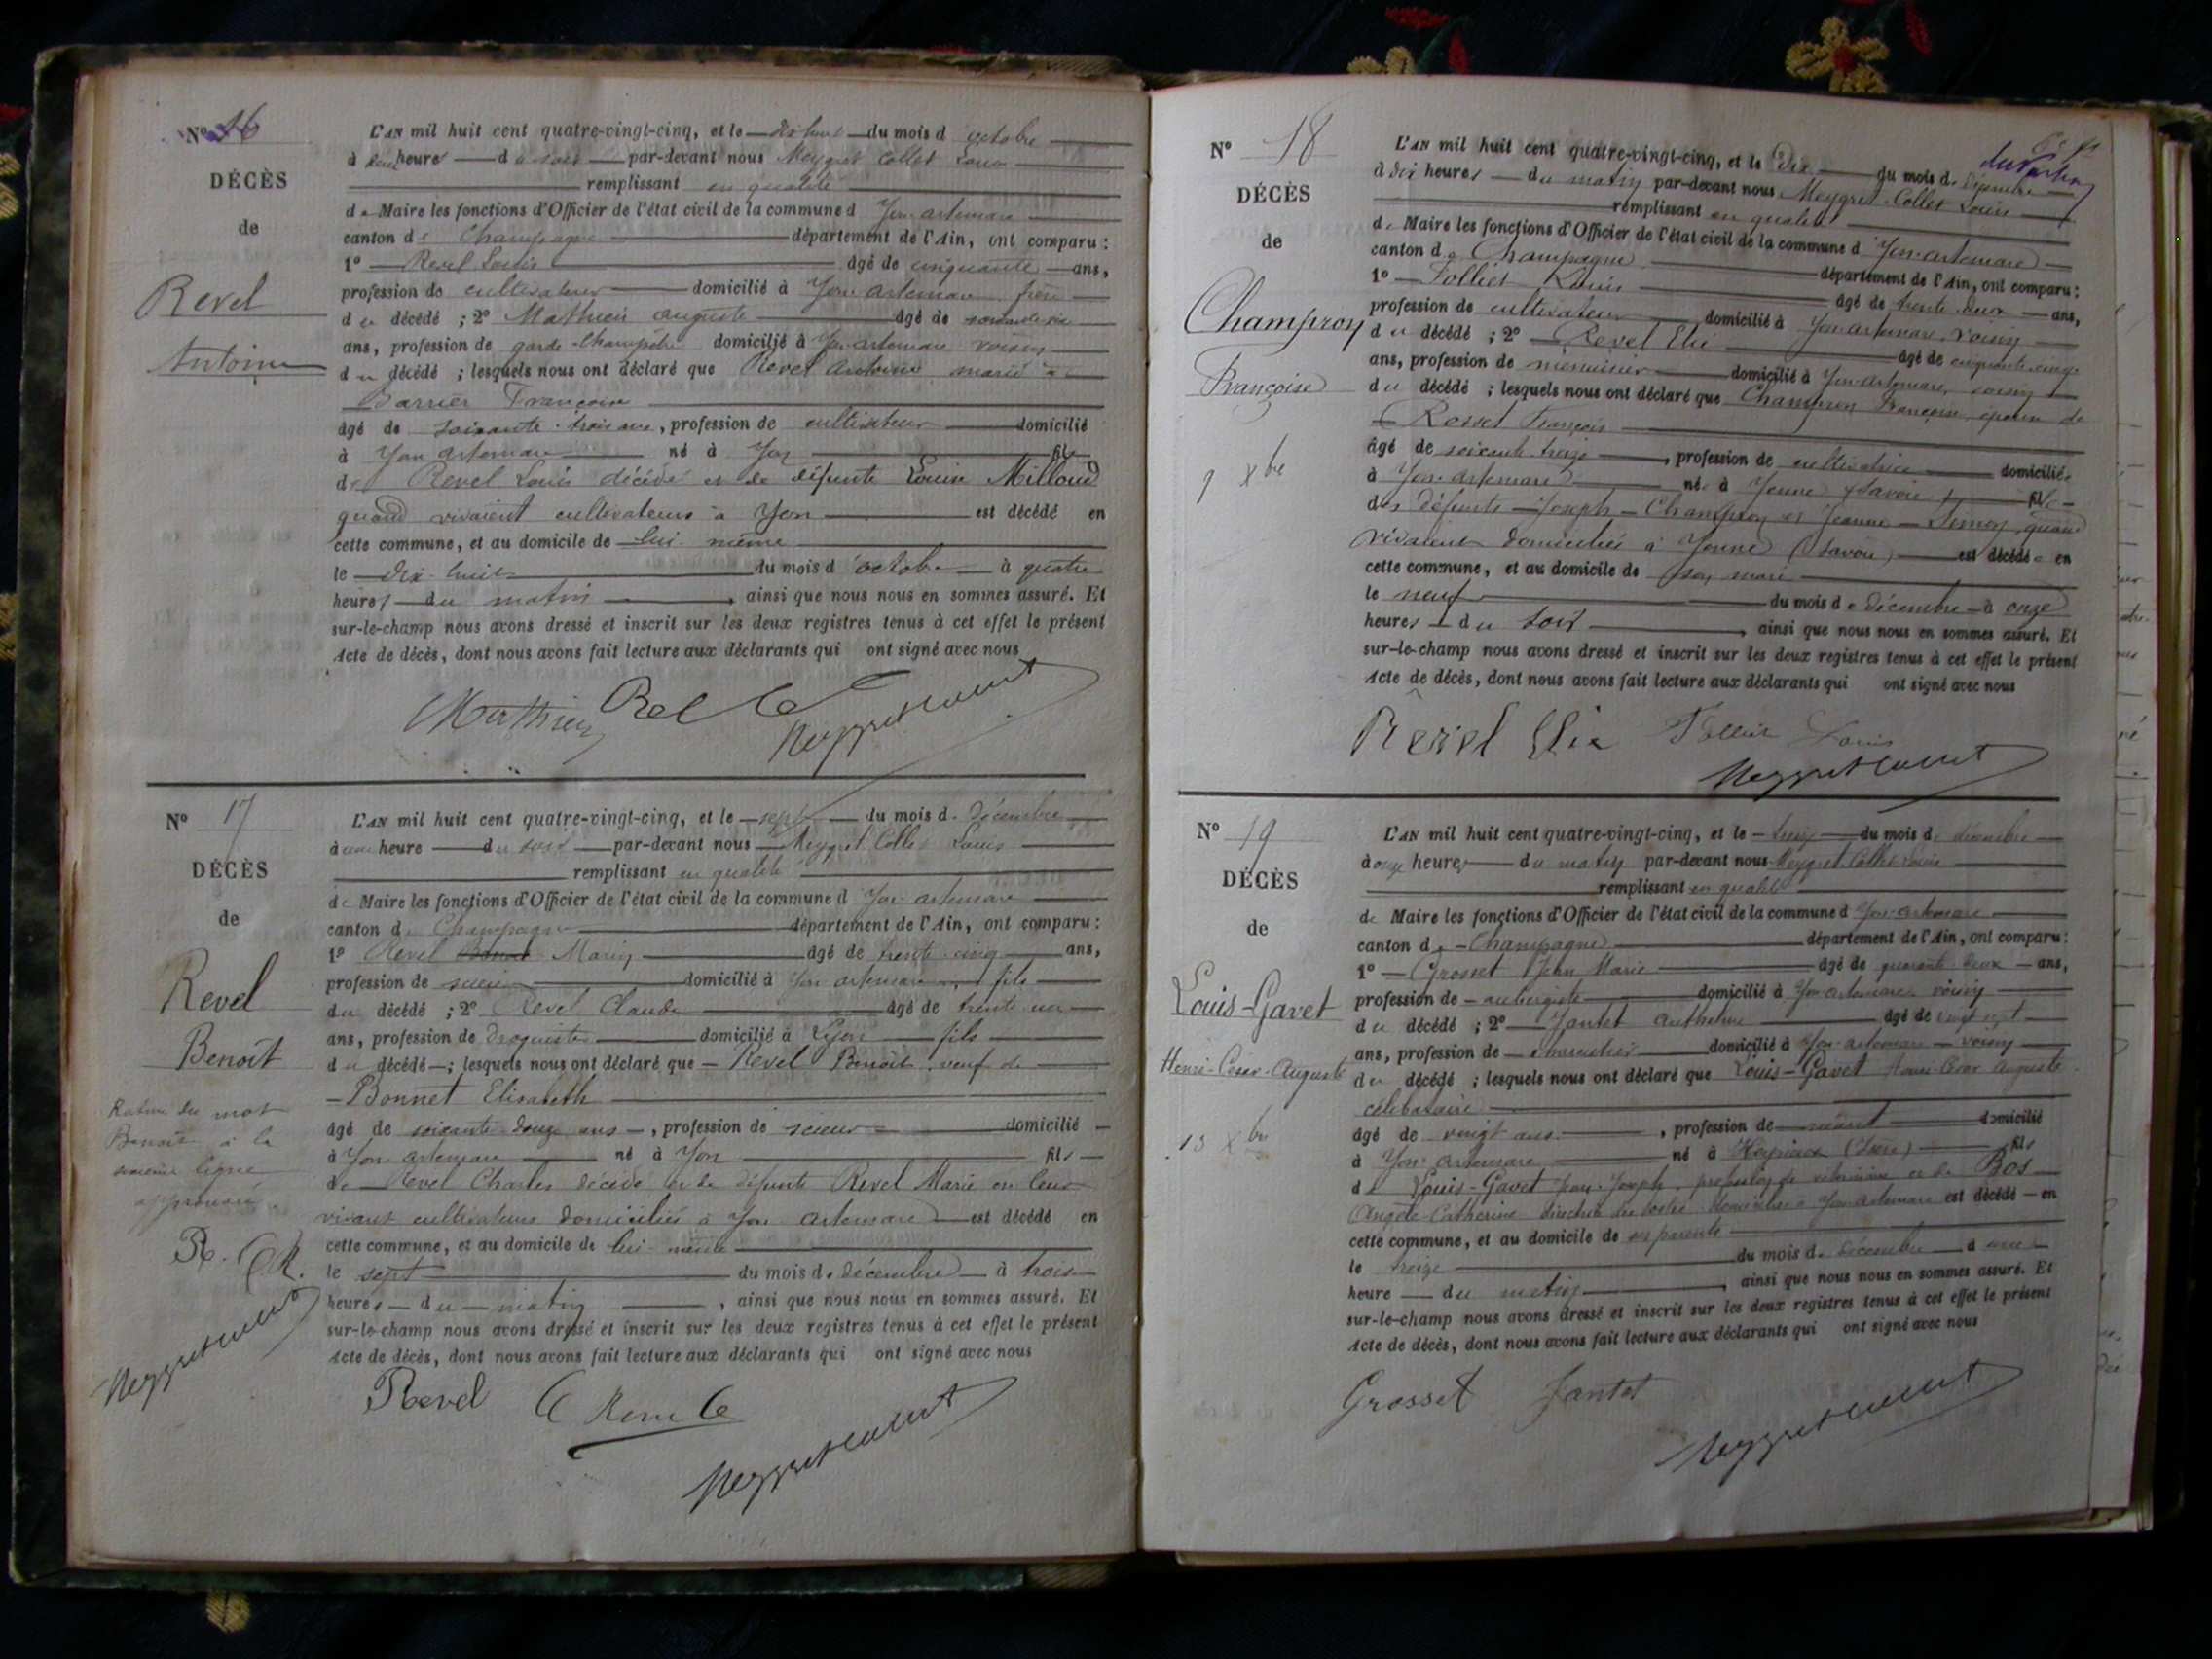 N° 16
DÉCÈS
de
Revel
Antoine
L'AN mil huit cent quatre-vingt-cinq, et le dix huit du mois d'octobre
à deux heures du soir par-devant nous Meygret Collet Louis
remplissant en qualité
de Maire les fonctions d'Officier de l'état civil de la commune d'Yon artemare
canton de Champagne département de l'Ain, ont comparu :
1° Revel Louis âgé de cinquante ans,
profession de cultivateur domicilié à Yon artemare frère
du décédé ; 2° Mathieu auguste âgé de
ans, profession de garde-Champêtre domicilié à Yon-artemare voisin
du décédé ; lesquels nous ont déclaré que Revel Antoine marié à
Barrier Françoise
âgé de soixante-trois ans, profession de cultivateur domicilié
à Yon artemare né à Yon fils
de Revel Louis décédé et de défunte Louise Milloud
quand vivaient cultivateurs à Yon est décédé en
cette commune, et au domicile de lui-même
le dix-huit du mois d'octobre à quatre
heures du matin, ainsi que nous nous en sommes assuré. Et
sur-le-champ nous avons dressé et inscrit sur les deux registres tenus à cet effet le présent
Acte de décès, dont nous avons fait lecture aux déclarants qui ont signé avec nous
Mathieu Meygret Collet
N° 17
DÉCÈS
de
Revel
Benoît
Rature du mot
Benoît à la
ligne
approuvée
R. C R.
Meygret Collet
L'AN mil huit cent quatre-vingt-cinq, et le sept du mois de Décembre
à une heure du soir par-devant nous Meygret Collet Louis
remplissant en qualité
de Maire les fonctions d'Officier de l'état civil de la commune d'Yon artemare
canton de Champagne département de l'Ain, ont comparu :
1° Revel Benoit Marin âgé de trente-cinq ans,
profession de domicilié à Yon artemare fils
du décédé ; 2° Revel Claude âgé de trente un
ans, profession de Droguiste domicilié à Lyon fils
du décédé ; lesquels nous ont déclaré que Revel Benoît veuf de
Bonnet Elisabeth
âgé de soixante-douze ans, profession de scieur domicilié
à Yon artemare né à Yon fils
de Revel Charles décédé et de défunte Revel Marie en leur
vivant cultivateurs domiciliés à Yon artemare est décédé en
cette commune, et au domicile de lui-même
le sept du mois de décembre à trois
heures du matin, ainsi que nous nous en sommes assuré. Et
sur-le-champ nous avons dressé et inscrit sur les deux registres tenus à cet effet le présent
Acte de décès, dont nous avons fait lecture aux déclarants qui ont signé avec nous
Revel
Meygret Collet
N° 18
DÉCÈS
de
Champron
Françoise
9 Xbre
L'AN mil huit cent quatre-vingt-cinq, et le Dix du mois de Décembre
à dix heures du matin par-devant nous Meygret-Collet Louis
remplissant en qualité
de Maire les fonctions d'Officier de l'état civil de la commune d'Yon-artemare
canton de Champagne département de l'Ain, ont comparu :
1° Folliet Louis âgé de trente-deux ans,
profession de cultivateur domicilié à Yon-artemare, voisin
du décédé ; 2° Revel Elie âgé de cinquante-cinq
ans, profession de menuisier domicilié à Yon-artemare, voisin
du décédé ; lesquels nous ont déclaré que Champron Françoise, épouse de
Rosset François
âgé de soixante-treize, profession de cultivatrice domiciliée
à Yon-artemare née à Yenne (Savoie) fille
des défunts Joseph Champron et Jeanne quand
vivaient domiciliés à Yenne (Savoie) est décédée en
cette commune, et au domicile de son mari
le neuf du mois de décembre à onze
heures du soir, ainsi que nous nous en sommes assuré. Et
sur-le-champ nous avons dressé et inscrit sur les deux registres tenus à cet effet le présent
Acte de décès, dont nous avons fait lecture aux déclarants qui ont signé avec nous
Revel Elie Folliet Louis
Meygret Collet
N° 19
DÉCÈS
de
Louis-Gavet
Henri-César-Auguste
13 Xbre
L'AN mil huit cent quatre-vingt-cinq, et le treize du mois de décembre
à onze heures du matin par-devant nous Meygret Collet Louis
remplissant en qualité
de Maire les fonctions d'Officier de l'état civil de la commune d'Yon-artemare
canton de Champagne département de l'Ain, ont comparu :
1° Grosset Jean Marie âgé de quarante-deux ans,
profession de aubergiste domicilié à Yon artemare voisin
du décédé ; 2° Jantet Anthelme âgé de vingt sept
ans, profession de charcutier domicilié à Yon-artemare voisin
du décédé ; lesquels nous ont déclaré que Louis-Gavet Henri-César Auguste
célibataire
âgé de vingt ans, profession de néant domicilié
à Yon-artemare né à Heyrieux (Isère) fils
de Louis-Gavet Jean-Joseph, profession de vétérinaire et de Bos
Angèle-Catherine directrice des postes domiciliés à Yon artemare est décédé en
cette commune, et au domicile de ses parents
le treize du mois de décembre à une
heure du matin, ainsi que nous nous en sommes assuré. Et
sur-le-champ nous avons dressé et inscrit sur les deux registres tenus à cet effet le présent
Acte de décès, dont nous avons fait lecture aux déclarants qui ont signé avec nous
Grosset Jantet
Meygret Collet